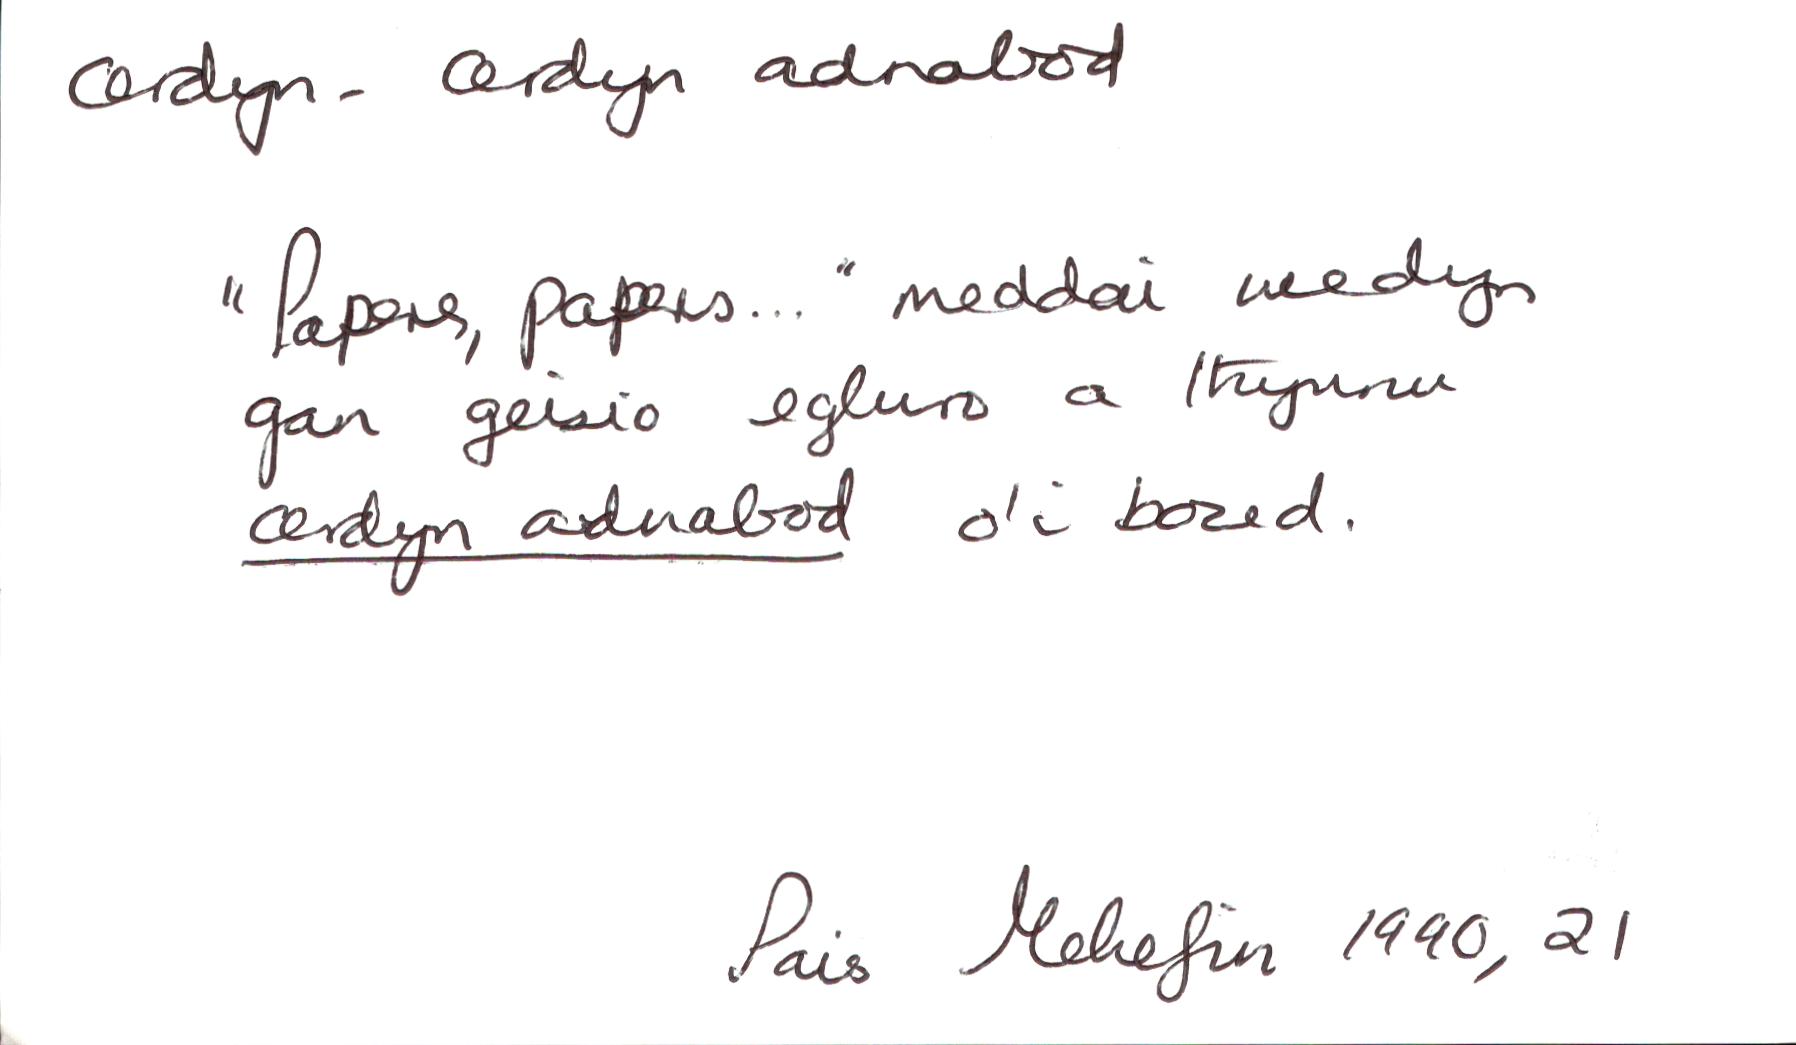 cerdyn - cerdyn adnabod
"Papers, papers..." meddai wedyn
gan geisio egluro a thynnu
cerdyn adnabod o'i boced.
Pais Mehefin 1990, 21